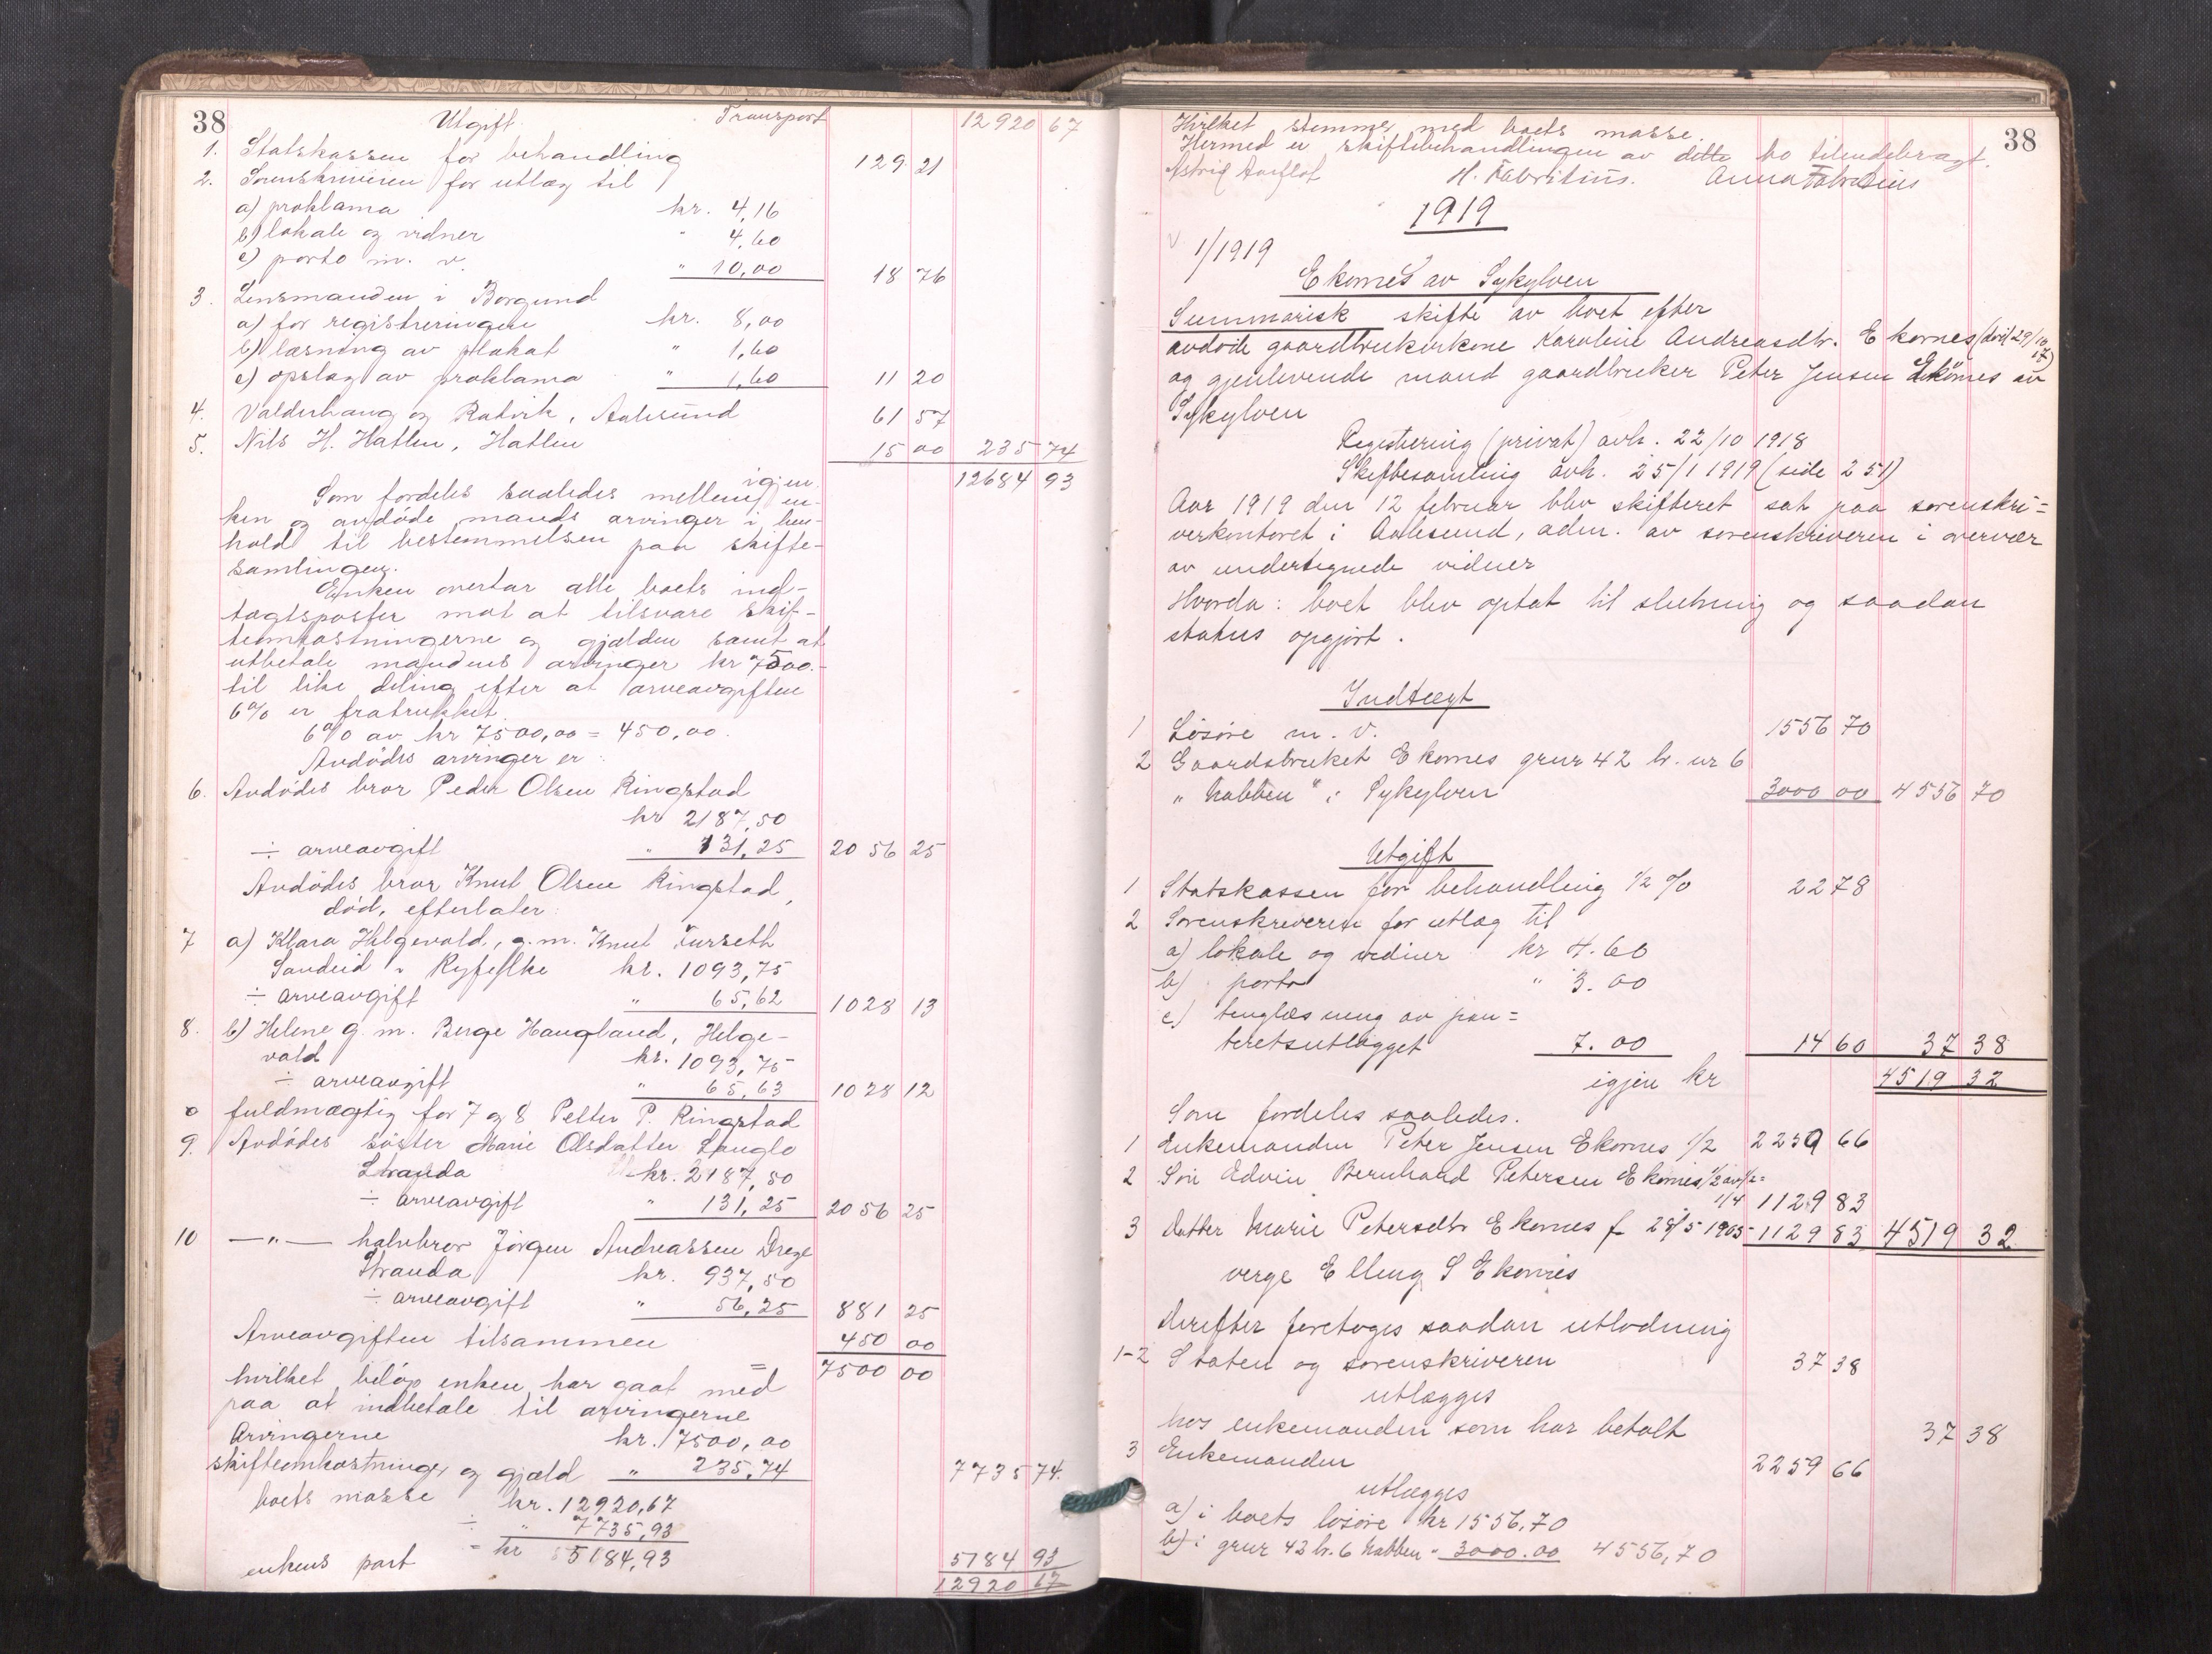 38 Utgift Transport 12920 67
1. Statskassen for behandling 129. 21
2. Sorenskriveren for utlæg til
a) proklama kr. 4,16
b) lokale og vidner " 4,60
c) porto m. v. " 10,00 18 76
3. Lensmanden i Borgund
a) for registreringen kr. 8,00
b) læsning av plakat " 1,60
c) opslag av proklama " 1,60 11 20
4. Valderhaug og Ratvik, Aalesund 61 57
5. Nils H. Hatlen, Hatlen 15 00 235 74
igjen 12684 93
Som fordeles saaledes mellem en-
ken og avdøde mands arvinger i hen-
hold til bestemmelsen paa skifte-
samlingen.
Enken overtar alle boets ind-
tægtsposter mot at tilsvare skif-
teomkostningerne og gjælden samt at
utbetale mandens arvinger kr 7500.-
til like deling efter at arveavgiften
6% er fratrukket.
6% av kr 7500,00 = 450,00.
Avdødes arvinger er:
6. Avdødes bror Peder Olsen Ringstad
kr 2187,50
÷ arveavgift " 131,25 2056 25
Avdødes bror Knut Olsen Ringstad,
død, efterlater:
7 a) Klara Helgevold, g. m. Knut Furseth
Sandeid i Ryfylke kr. 1093,75
÷ arveavgift " 65,62 1028 13
8. b) Helene g. m. Berge Haugland, Helge-
vold kr. 1093,75
÷ arveavgift " 65,63 1028 12
fuldmægtig for 7 og 8 Petter P. Ringstad
9. Avdødes søster Marie Olsdatter Langlo
Stranda kr. 2187,50
÷ arveavgift " 131,25 2056 25
10 —"— halvbror Jørgen Andreassen Drege
Stranda kr. 937,50
÷ arveavgift " 56,25 881 25
Arveavgiften tilsammen 450 00
= 7500 00
hvilket beløp enken har gaat med
paa at indbetale til arvingerne
Arvingerne kr. 7500,00
skifteomkostninger og gjæld " 235,74 7735 74.
boets masse kr. 12920,67
÷ " 7735,93
enkens part = kr 5184,93 5184 93
12920 67
38
Hvilket stemmer med boets masse.
Hermed er skiftebehandlingen av dette bo tilendebragt.
Astrid Aarflot H. Fabritius. Anna Fabritius
1919
1/1919
Ekornes av Sykylven
Summarisk skifte av boet efter
avdøde gaardbrukerkone Karoline Andreasdtr. Ekornes (død 29/10
17)
og gjenlevende mand gaardbruker Peter Jensen Ekornes av
Sykylven
Registrering (privat) avh. 22/10 1918
Skiftesamling avh. 25/1 1919 (side 251)
Aar 1919 den 12 februar blev skifteret sat paa sorenskri=
verkontoret i Aalesund, adm. av sorenskriveren i overvær
av undertegnede vidner
Hvorda: boet blev optat til slutning og saadan
status opgjort.
Indtægt
1 Løsøre m. v. 1556 70
2 Gaardsbruket Ekornes grnr 42 br. nr 6
" Nabben " i Sykylven 3000 00 4556 70
Utgift
1 Statskassen for behandling 1/2 % 22 78
2 Sorenskriveren for utlæg til
a) lokale og vidner kr 4.60
b) porto " 3.00
c) tinglæsning av pan=
teretsutlægget 7.00 14 60 37 38
igjen kr 4519 32
Som fordeles saaledes.
1 Enkemanden Peter Jensen Ekornes 1/2 2259 66
2 Søn Edvin Bernhard Petersen Ekornes 1/2 av 1/2=
1/4 1129 83
3 Datter Marie Petersdtr Ekornes f. 28/5 1905 1129 83 4519 32
verge Elling S Ekornes
Derefter foretoges saadan utlodning
1-2 Staten og sorenskriveren 37 38
utlægges
hos enkemanden som har betalt 37 38
3 Enkemanden 2259 66
utlægges
a) i boets løsøre kr 1556,70
b) i grnr 42 br. 6 Nabben " 3000.00 4556,70